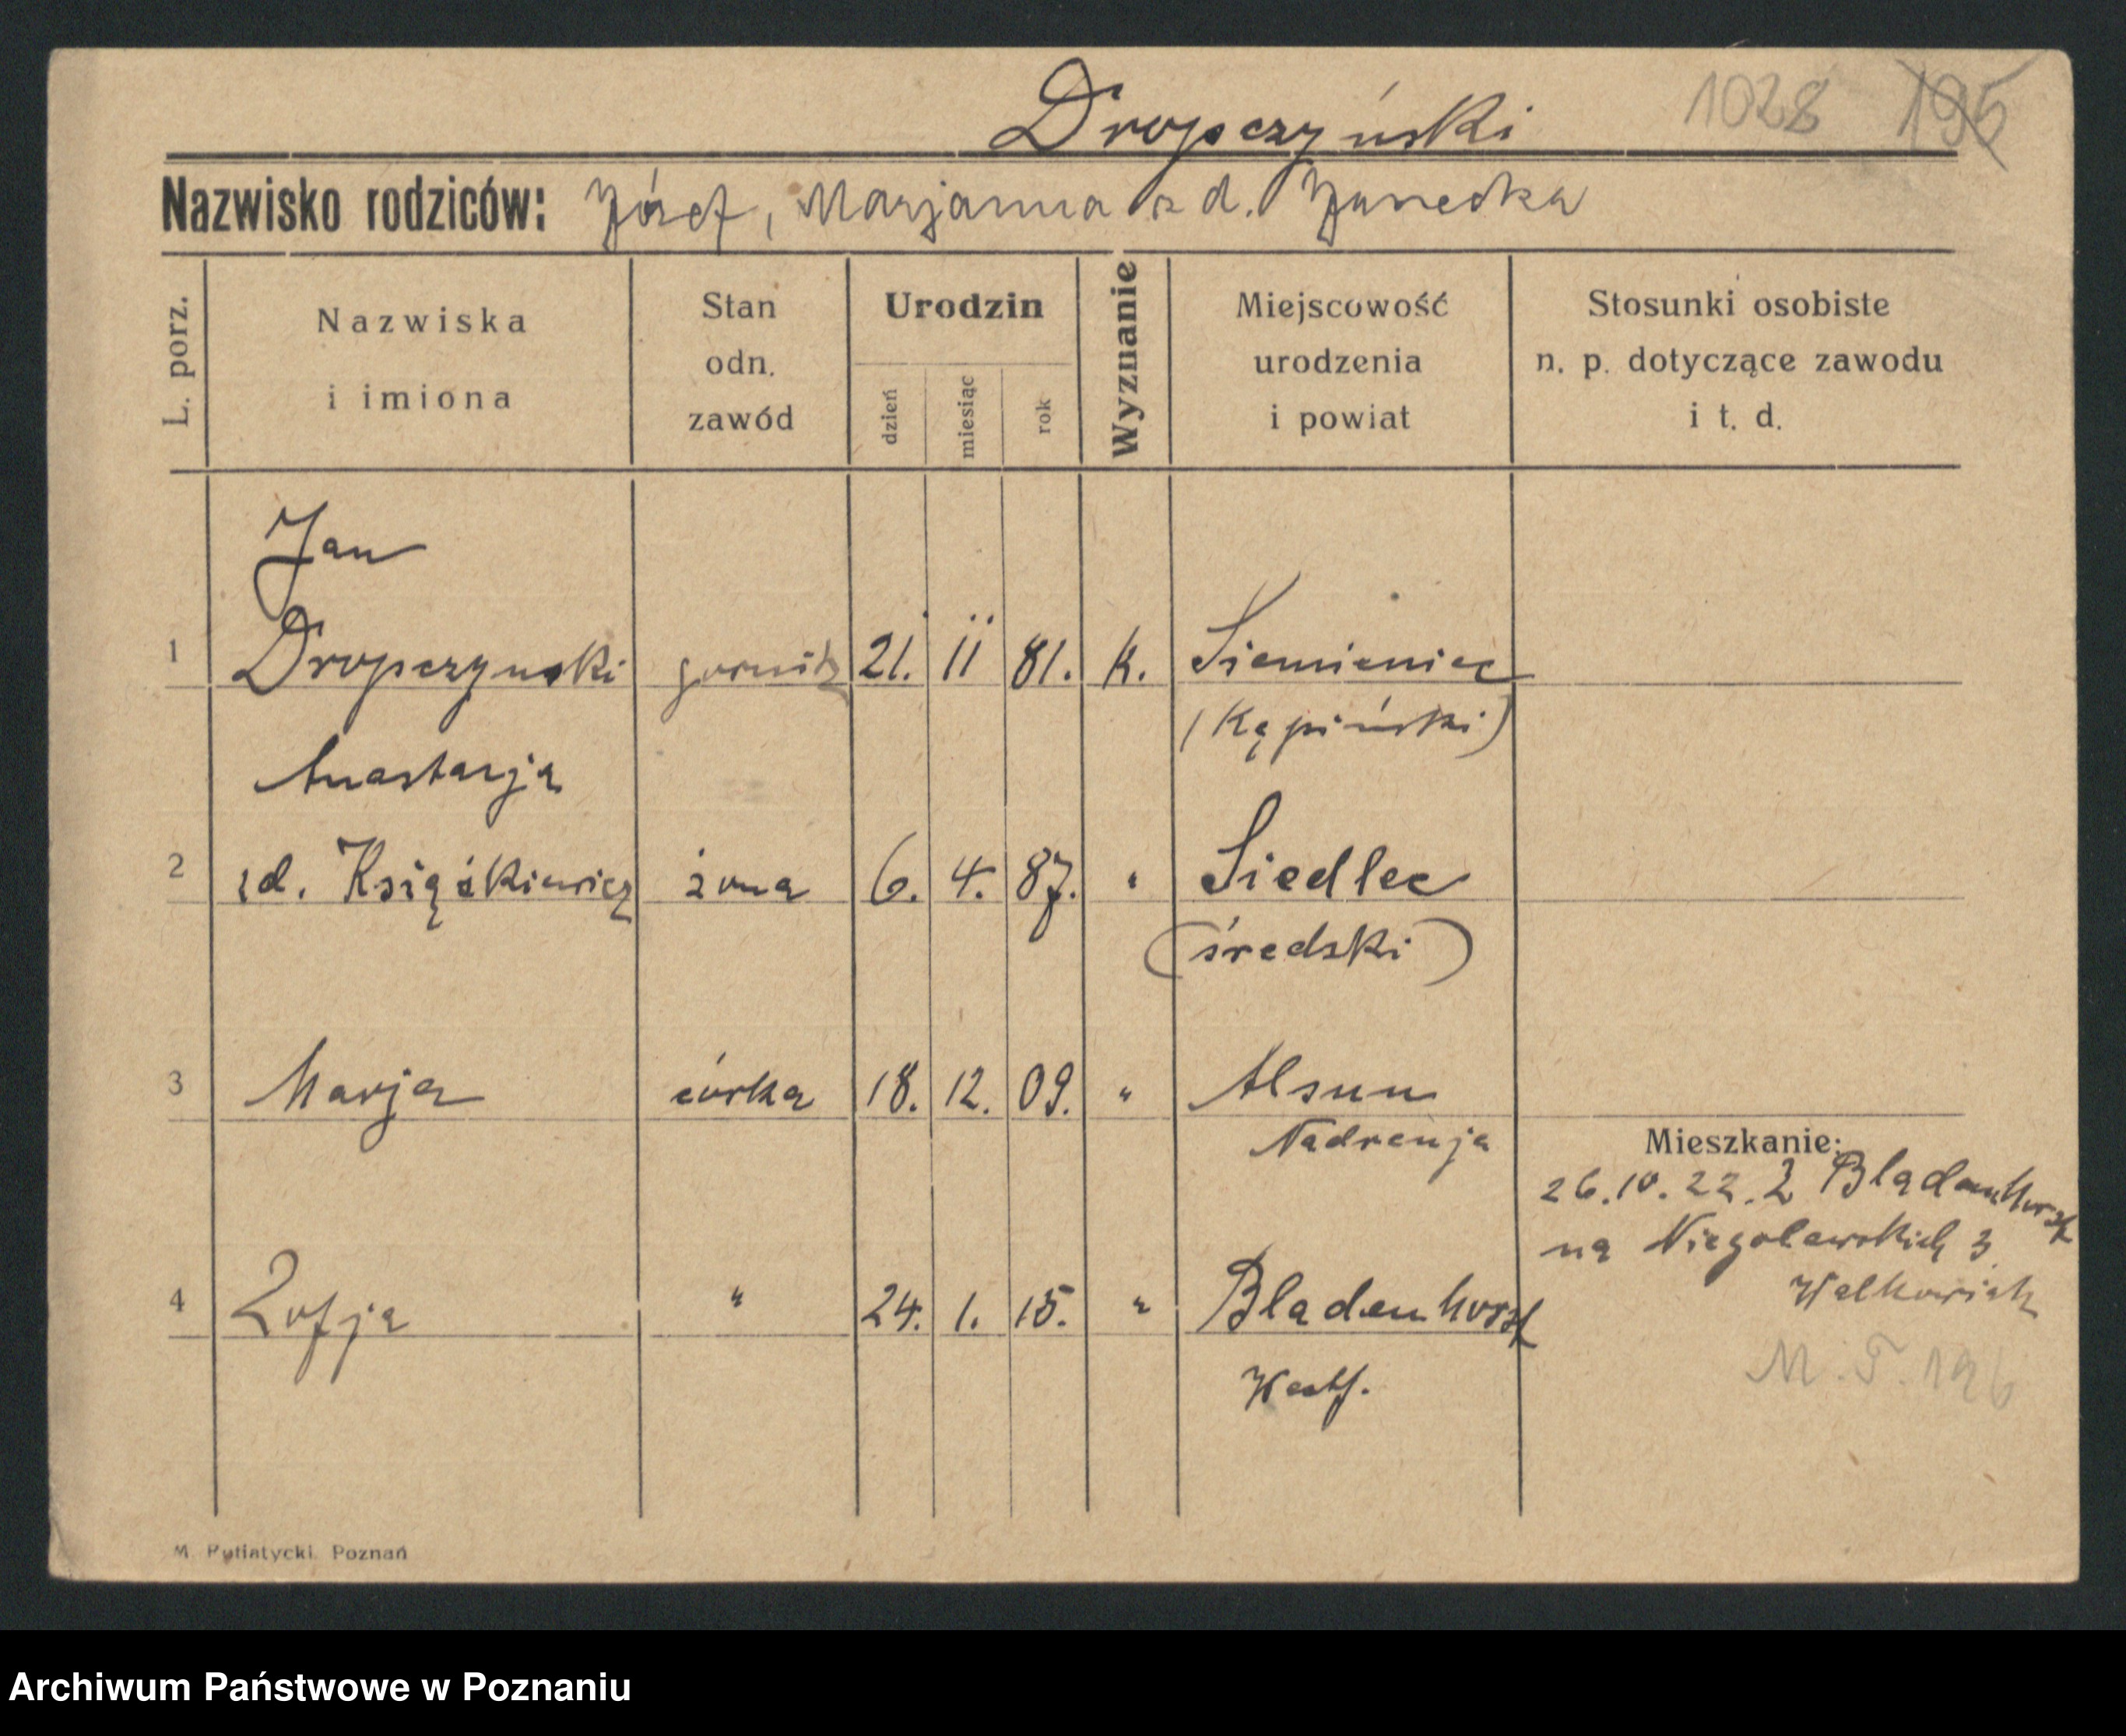 Dropczyński 1028 195
Nazwisko rodziców: Józef, Marjanna z d. Janecka
L. porz.
Nazwiska
i imiona
Stan
odn.
zawód
Urodzin
dzień
miesiąc
rok
Wyznanie
Miejscowość
urodzenia
i powiat
Stosunki osobiste
n. p. dotyczące zawodu
i t. d.
Jan
1 Dropczynski gornik 21. 11 81. k. Siemieniec
(Kępiński)
Anastazja
2 zd. Książkiewicz żona 6. 4. 87. " Siedlec
(średski)
3 Marja córka 18. 12. 09. " Alsum
Nadrenja
4 Zofja " 24. 1. 15. " Bladenhorst
Westf.
Mieszkanie:
26.10.22. Z Bladenhorst
na Niegolewskich 3
Walkowiak
M. T. 196
M. Putiatycki. Poznań
Archiwum Państwowe w Poznaniu